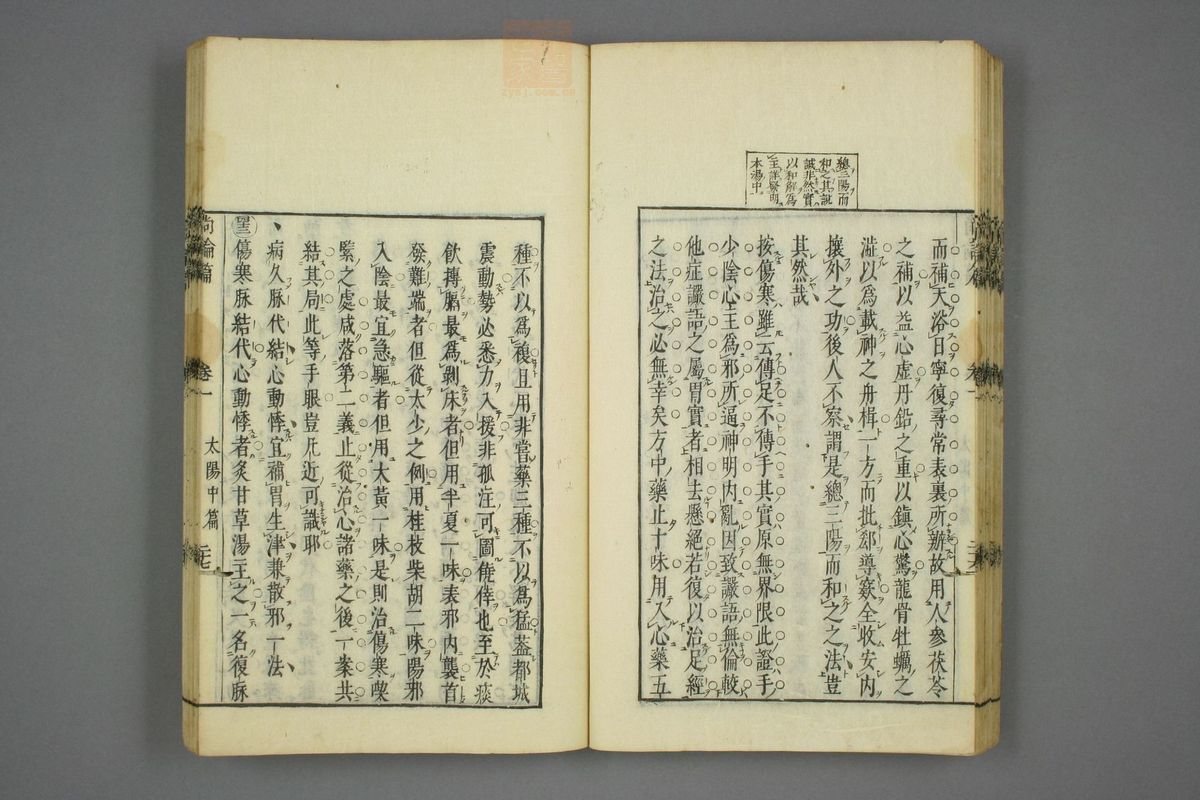 總三陽而
和之其說
誠非然實
以和解為
主詳發明
本湯中
而補天浴日寧復尋常表裏所辦故用人參茯苓
之補以益心虛丹鉛之重以鎮心驚龍骨牡蠣之
澁以爲載神之舟楫一方而批郤導窾全收安內
攘外之功後人不察謂是總三陽而和之之法豈
其然哉
按傷寒雖云傳足不傳手其實原無界限此證手
少陰心主爲邪所逼神明內亂因致讝語無倫較
他症讝語之屬胃實者相去懸絕若復以治足經
之法治之必無幸矣方中藥止十味用入心藥五
種不以爲複且用非嘗藥三種不以爲猛葢都城
震動勢必悉力入援非孤注可圖僥倖也至於痰
飲摶膈最爲剝床者但用半夏一味表邪內襲首
發難端者但從太少之例用桂枝柴胡二味陽邪
入陰最宜急驅者但用大黃一味是則治傷寒喫
緊之處咸落第二義止從治心諸藥之後一案共
結其局此等手眼豈凡近可識耶
病久脉代結心動悸宜補胃生津兼散邪一法
傷寒脉結代心動悸者炙甘草湯主之一名復脉
尚論篇
卷一
太陽中篇